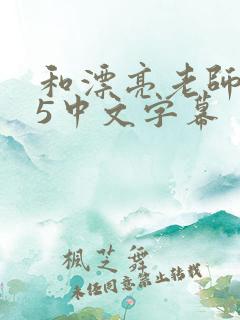 和漂亮老師
5中文字幕
楓芝舞
未经同意禁止转载